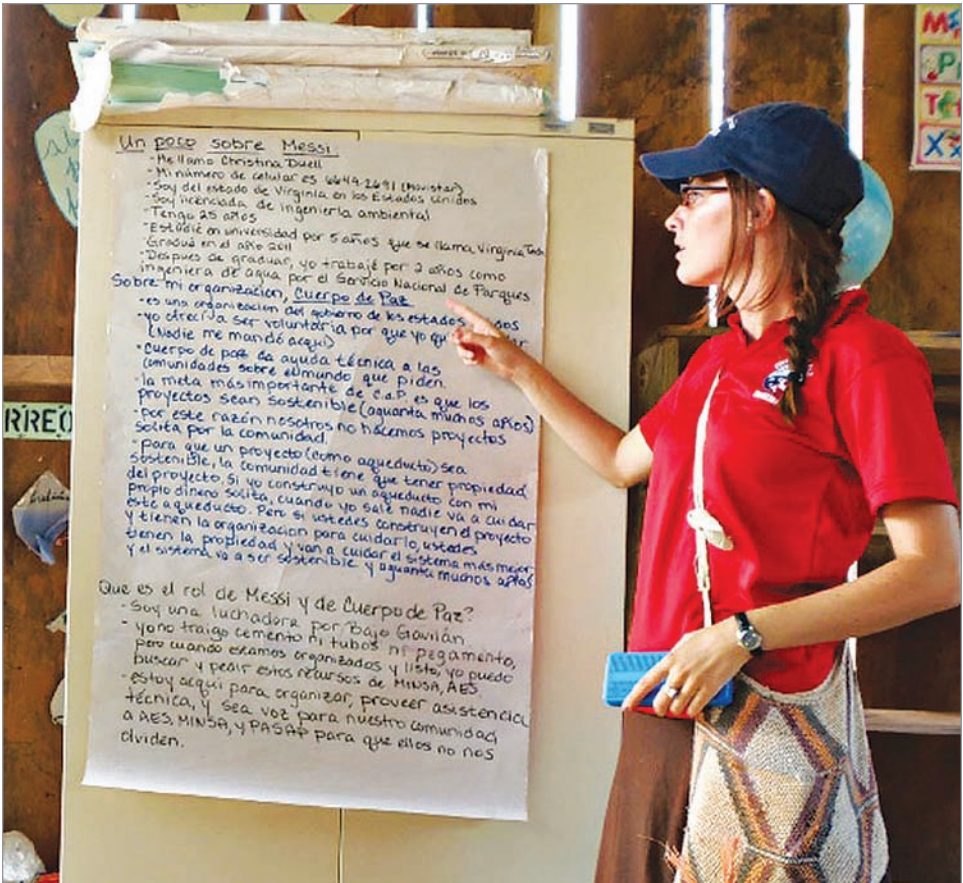 Un poco sobre Messi:
- Me llamo Christina Duell
- Mi número de celular es 6649-2691 (Movistar)
- Soy del estado de Virginia en los Estados Unidos
- Soy licenciada de ingeniería ambiental
- Tengo 25 años
- Estudié en universidad por 5 años que se llama Virginia Tech
- Gradué en el año 2011
- Despues de graduar, yo trabajé por 2 años como
ingeniera de agua por el Servicio Nacional de Parques
Sobre mi organización, Cuerpo de Paz
- es una organización del gobierno de los estados
- yo ofrecí a ser voluntaria por que yo
(Nadie me mandó acquí)
- Cuerpo de paz da ayuda técnica a las
comunidades sobre el mundo que piden.
- la meta más importante de C.d.P. es que los
proyectos sean sostenible (aguanta muchos años)
- por este razón nosotros no hacemos proyectos
solita por la comunidad.
- para que un proyecto (como aqueducto) sea
sostenible, la comunidad tiene que tener propiedad
del proyecto. Si yo construyo un aqueducto con mi
propio dinero solita, cuando yo sale nadie va a cuidar
este aqueducto. Pero si ustedes construyen el proyecto
y tienen la organización para cuidarlo, ustedes
tienen la propiedad y van a cuidar el sistema más mejor
y el sistema va a ser sostenible y aguanta muchos años
Que es el rol de Messi y de Cuerpo de Paz?
- Soy una luchadora por Bajo Gavilán
- yo no traigo cemento ni tubos ni pegamento,
pero cuando estamos organizados y listo, yo puedo
buscar y pedir estos recursos de MINSA, AES
- estoy acquí para organizar, proveer asistencia
técnica, y sea voz para nuestro comunidad
a AES, MINSA, y PASAP para que ellos no nos
olviden.
RREO